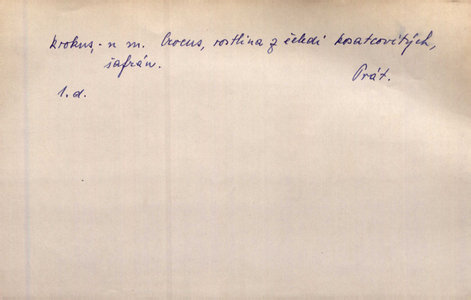 krokus, -u m. Crocus, rostlina z čeledi kosatcovitých,
šafrán.
Prát.
1. d.